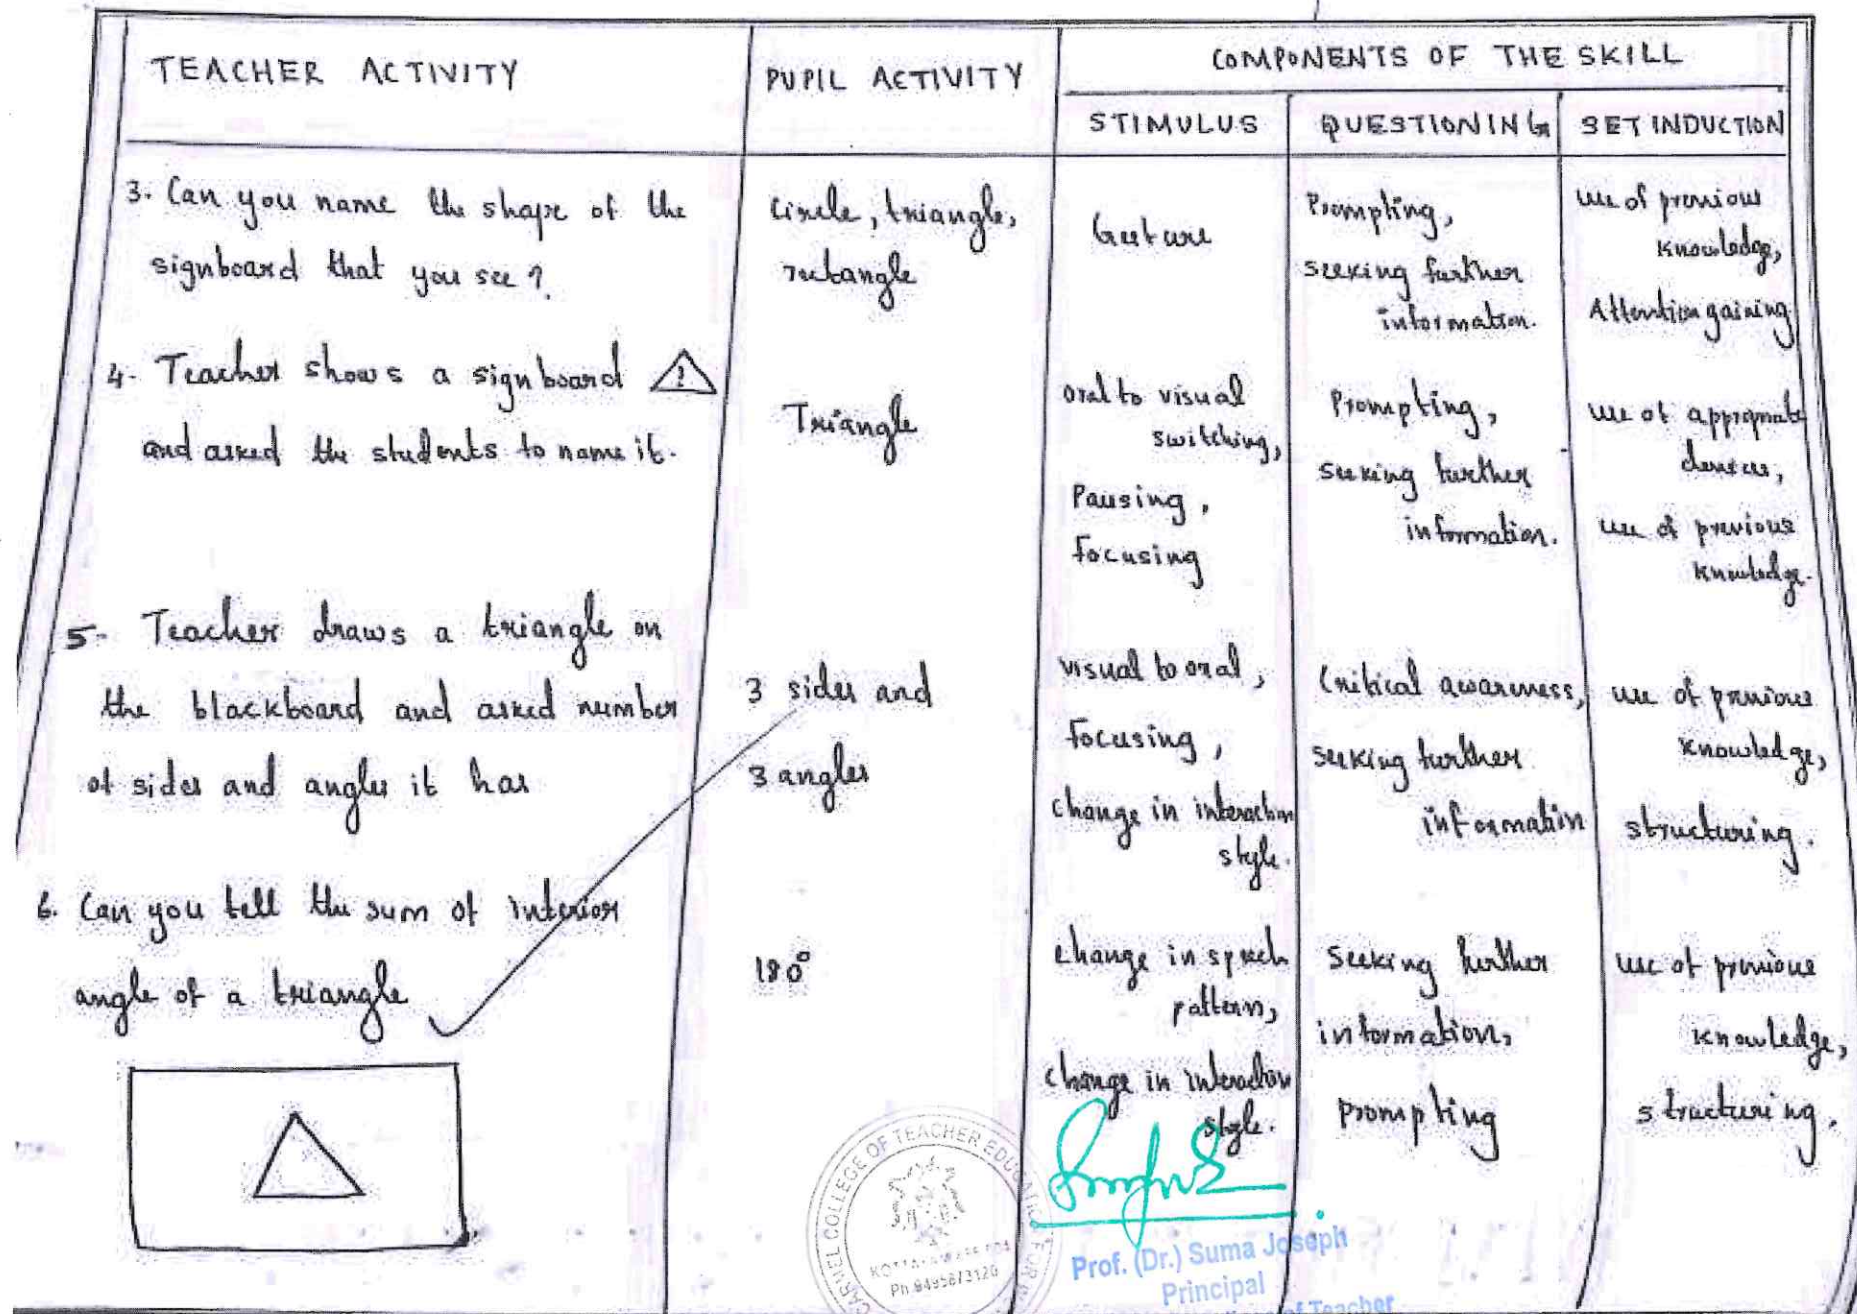 TEACHER ACTIVITY
PUPIL ACTIVITY
COMPONENTS OF THE SKILL
STIMULUS
QUESTIONING
SET INDUCTION
3. Can you name the shape of the
signboard that you see?
Circle, triangle,
rectangle
Gesture
Prompting,
seeking further
information.
use of previous
knowledge,
Attention gaining
4. Teacher shows a signboard
and asked the students to name it.
Triangle
oral to visual
switching,
Pausing,
Focusing
Prompting,
seeking further
information.
use of appropriate
devices,
use of previous
knowledge.
5. Teacher draws a triangle on
the blackboard and asked number
of sides and angles it has
3 sides and
3 angles
visual to oral,
Focusing,
change in interaction
style.
Critical awareness,
seeking further
information
use of previous
knowledge,
structuring.
6. Can you tell the sum of interior
angle of a triangle
180°
change in speech
pattern,
change in interaction
style.
Seeking further
information,
prompting
use of previous
knowledge,
structuring.
CARMEL COLLEGE OF TEACHER EDUCATION FOR
Prof. (Dr.) Suma Joseph
Principal
of Teacher